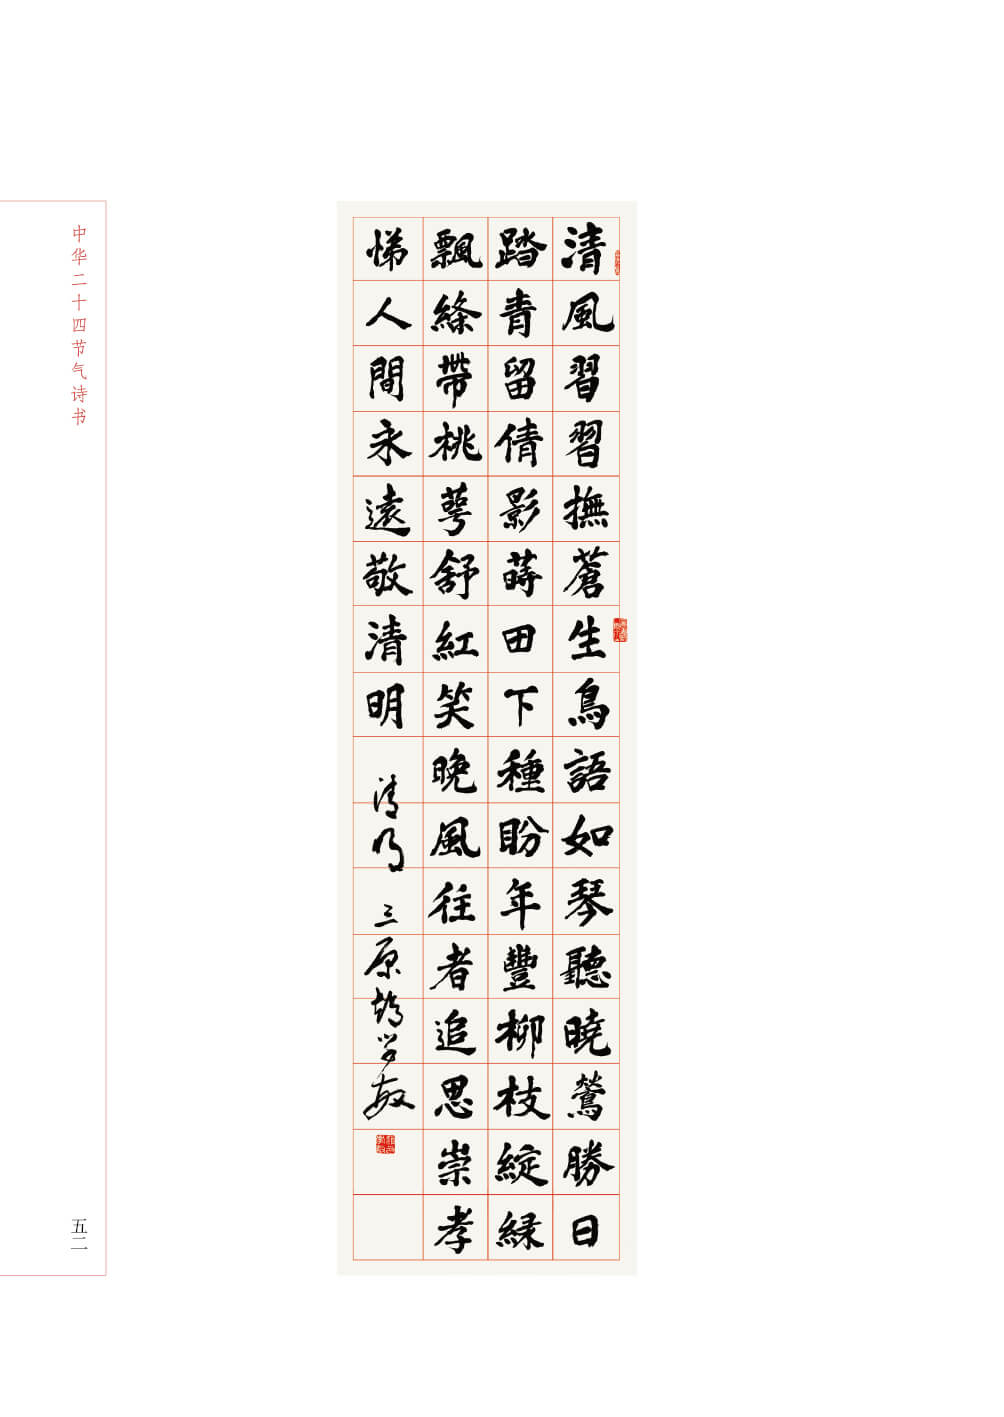 清風習習撫蒼生鳥語如琴聽曉鶯勝日
踏青留倩影蒔田下種盼年豐柳枝綻緑
飄絛帶桃萼舒紅笑晚風往者追思崇孝
悌人間永遠敬清明
清明 三原
学敏
中华二十四节气诗书
五二